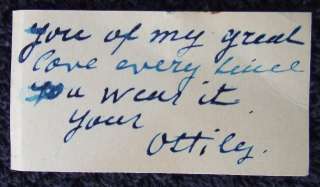 you of my great
love every time
you wear it
your
Ottily.